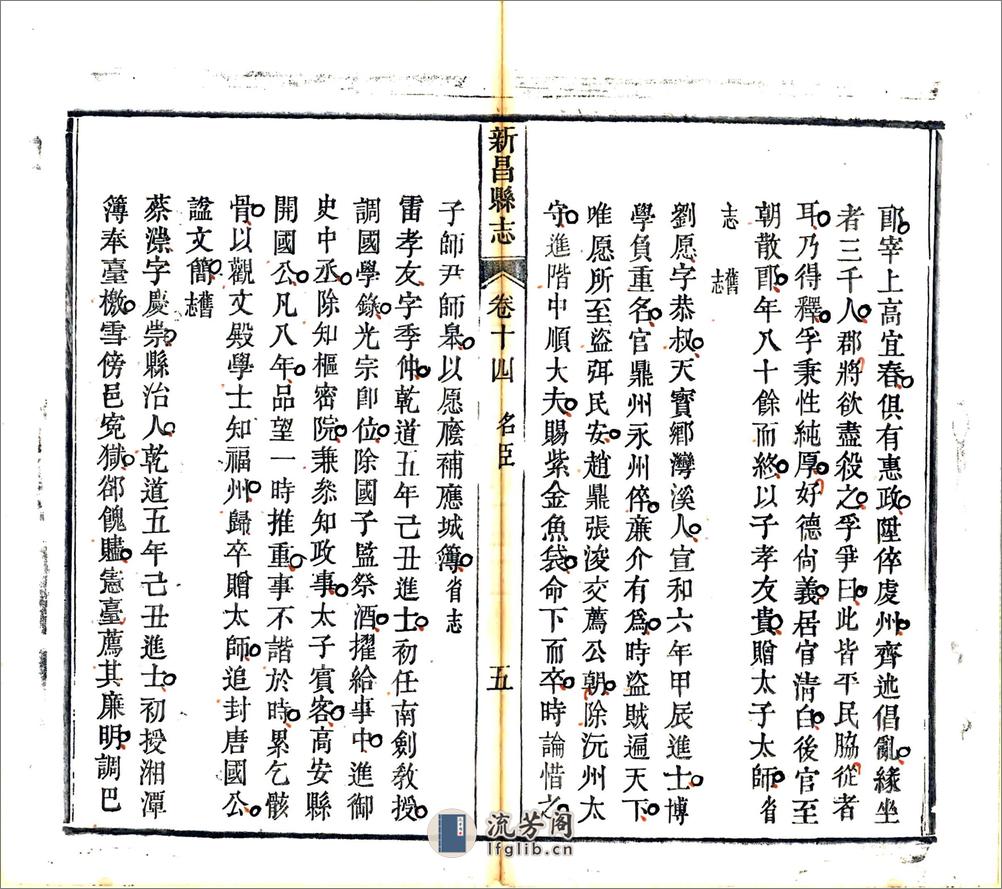 郎宰上高宜春俱有惠政陞倅虔州齊述倡亂緣坐
者三千人郡將欲盡殺之孚爭曰此皆平民脇從者
耳乃得釋孚秉性純厚好德尙義居官淸白後官至
朝散郎年八十餘而終以子孝友貴贈太子太師省
志 舊志
劉愿字恭叔天寶鄉灣溪人宣和六年甲辰進士博
學負重名官鼎州永州倅亷介有爲時盜賊遍天下
唯愿所至盜弭民安趙鼎張浚交薦公朝除沅州太
守進階中順大夫賜紫金魚袋命下而卒時論惜之
新昌縣志 卷十四 名臣 五
子師尹師皋以愿廕補應城簿省志
雷孝友字季仲乾道五年己丑進士初任南劍敎授
調國學錄光宗卽位除國子監祭酒擢給事中進御
史中丞除知樞密院兼叅知政事太子賓客高安縣
開國公凡八年品望一時推重事不諧於時累乞骸
骨以觀文殿學士知福州歸卒贈太師追封唐國公
諡文簡舊志
蔡濴字慶崇縣治人乾道五年己丑進士初授湘潭
簿奉臺檄雪傍邑寃獄郤餽贐憲臺薦其廉明調巴
流芳阁
lfglib.cn